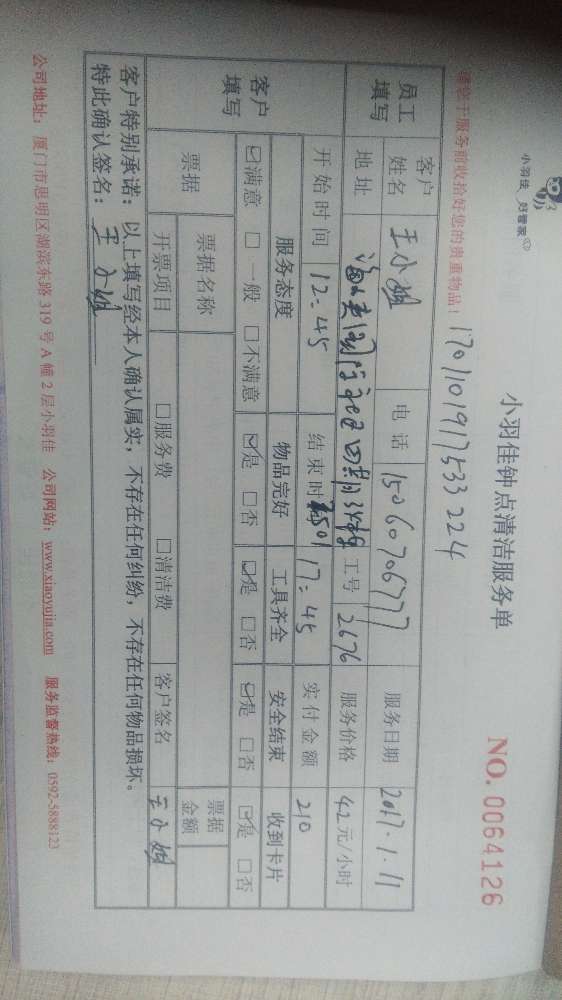 小羽佳 好管家
小羽佳钟点清洁服务单
NO. 0064126
请您于服务前收拾好您的贵重物品！ 1701101917533224
员工填写 客户姓名 王小姐 电话 15060706777 服务日期 2017.1.11
地址 工号 2676 服务价格 42元/小时
开始时间 12:45 结束时间 17:45 实付金额 210
客户填写 服务态度 物品完好 工具齐全 安全结束 收到卡片
☑满意 □一般 □不满意 ☑是 □否 ☑是 □否 ☑是 □否 ☑是 □否
票据 票据名称 票据金额
开票项目 □服务费 □清洁费 客户签名 王小姐
客户特别承诺：以上填写经本人确认属实，不存在任何纠纷，不存在任何物品损坏。
特此确认签名：王小姐
公司地址：厦门市思明区湖滨东路319号A幢2层小羽佳 公司网站：www.xiaoyujia.com 服务监督热线：0592-5888123